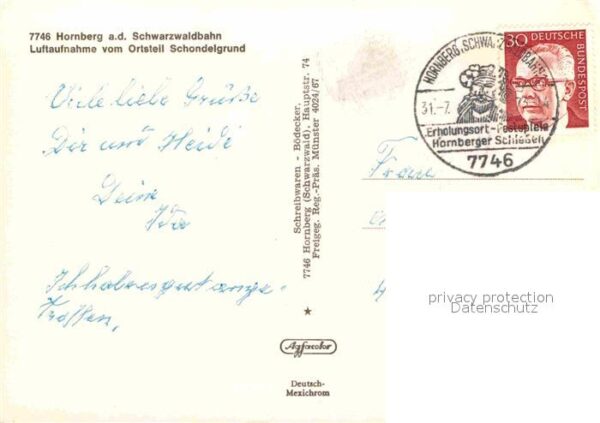 7746 Hornberg a.d. Schwarzwaldbahn
Luftaufnahme vom Ortsteil Schondelgrund
Viele liebe Grüße
Dir und Heidi
Deine
Ich habe es gut ange-
troffen.
Schreibwaren - Bödecker,
7746 Hornberg (Schwarzwald), Hauptstr. 74
Freigeg. Reg.-Präs. Münster 4024/67
Agfacolor
Deutsch-
Mexichrom
HORNBERG (SCHWARZWALDBAHN)
31.-7.
Erholungsort-Festspiele
Hornberger Schießen
7746
30 DEUTSCHE
BUNDESPOST
Frau
privacy protection
Datenschutz